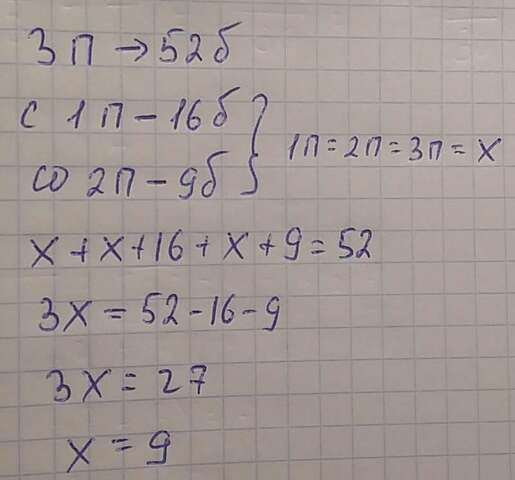 3п → 52б
с 1п - 16б
со 2п - 9б
1п = 2п = 3п = х
х + х + 16 + х + 9 = 52
3х = 52 - 16 - 9
3х = 27
х = 9